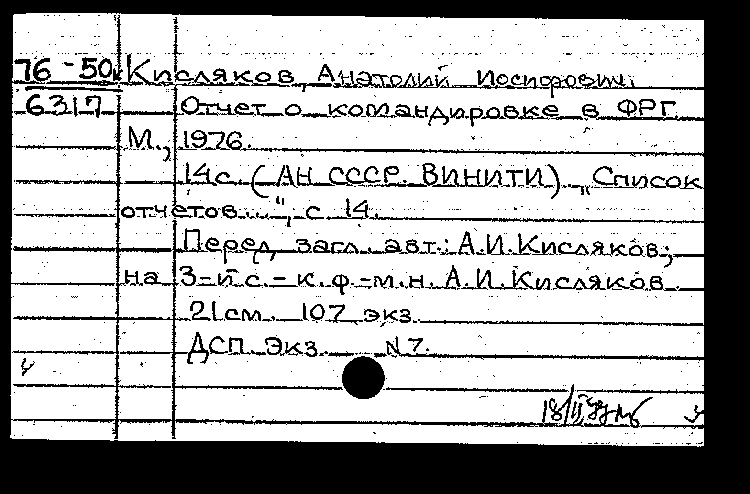 76-50 Кисляков, Анатолий Иосифович.
6317 Отчет о командировке в ФРГ.
М., 1976.
14с. (АН СССР. ВИНИТИ) „Список
отчетов...", с 14.
Перед загл. авт.: А.И.Кисляков;
на 3-й с. - к.ф.-м.н. А.И.Кисляков
21см. 107 экз.
ДСП. Экз. N 7.